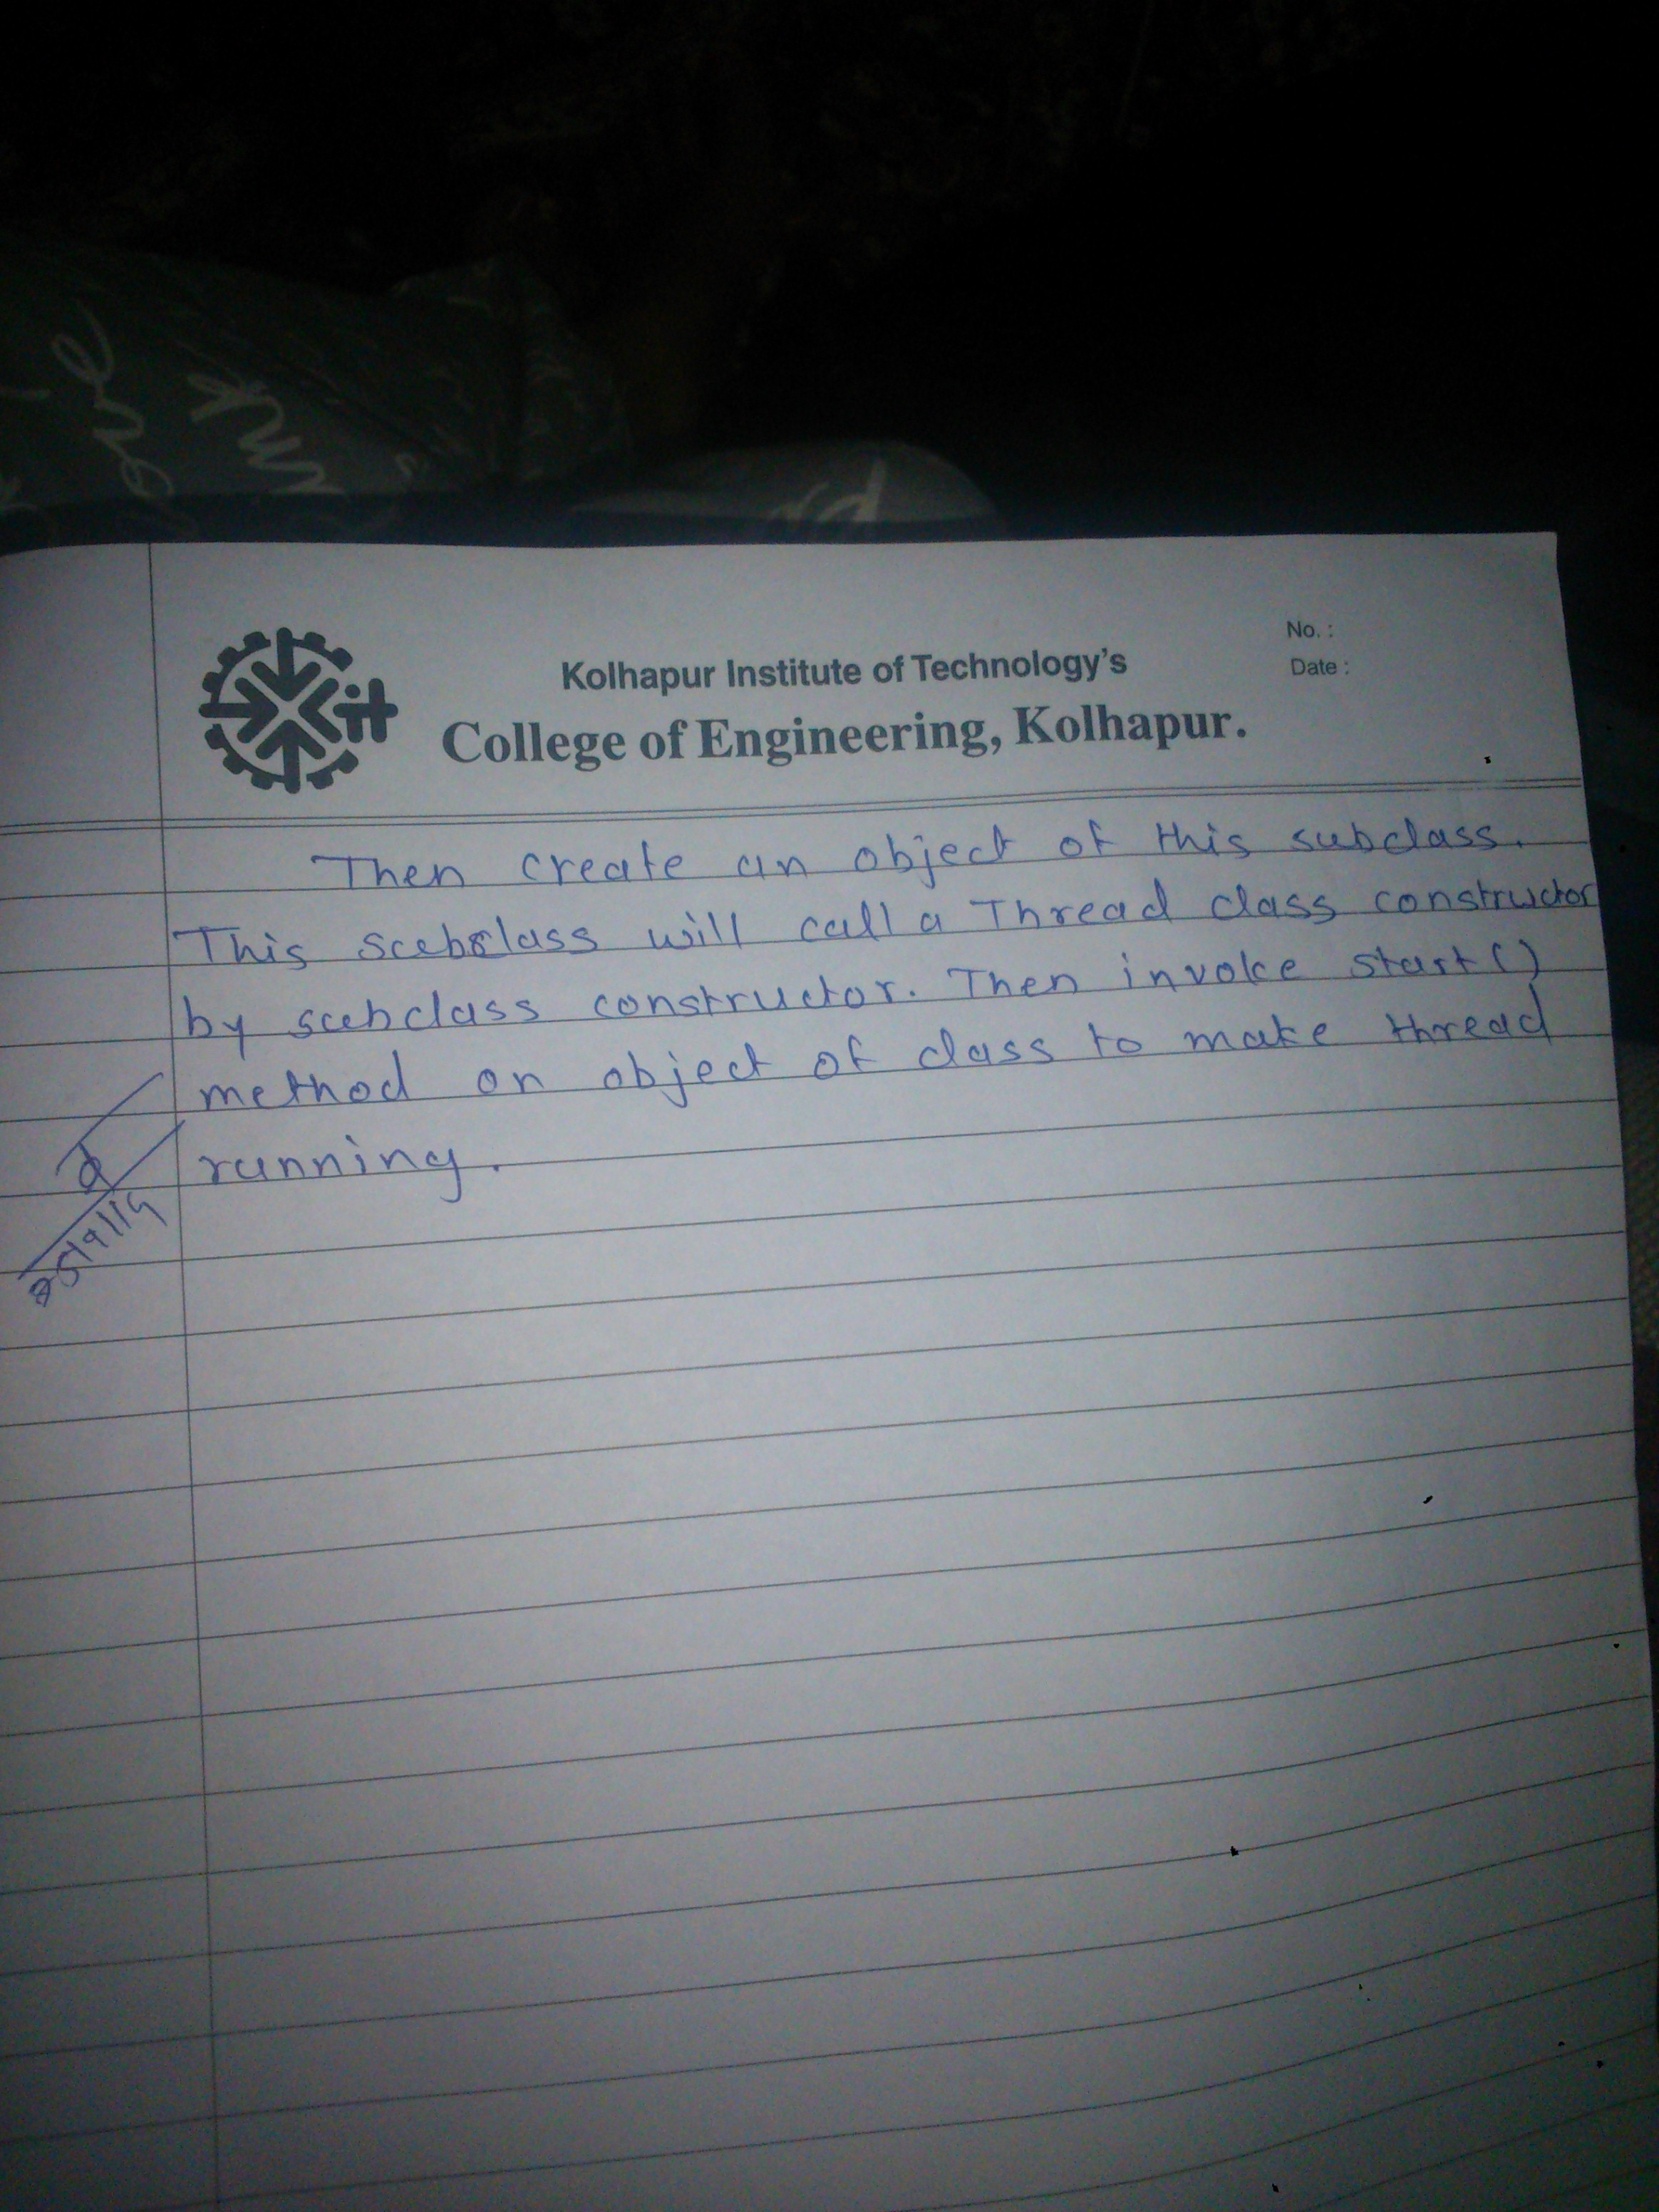 No. :
Kolhapur Institute of Technology's
Date :
kit
College of Engineering, Kolhapur.
Then create an object of this subclass.
This subclass will call a Thread class constructor
by subclass constructor. Then invoke start()
method on object of class to make thread
running.